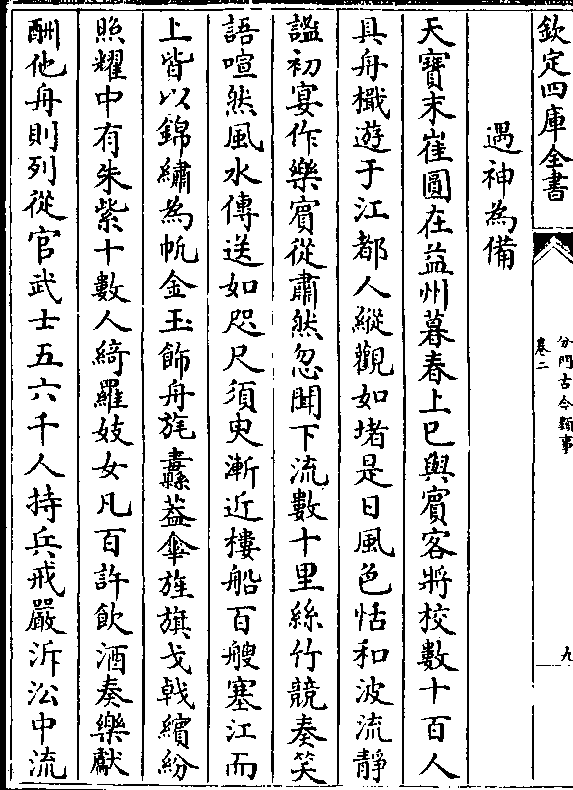 欽定四庫全書
分門古今類事
卷二
九
遇神為備
天寶末崔圓在益州暮春上巳與賓客將校數十百人
具舟檝遊于江都人縱觀如堵是日風色恬和波流靜
謐初宴作樂賓從肅然忽聞下流數十里絲竹競奏笑
語喧然風水傳送如咫尺須臾漸近樓船百艘塞江而
上皆以錦繡為帆金玉飾舟旄纛葢傘旌旗戈戟繽紛
照耀中有朱紫十數人綺羅妓女凡百許飲酒奏樂獻
酬他舟則列從官武士五六千人持兵戒嚴泝㳂中流